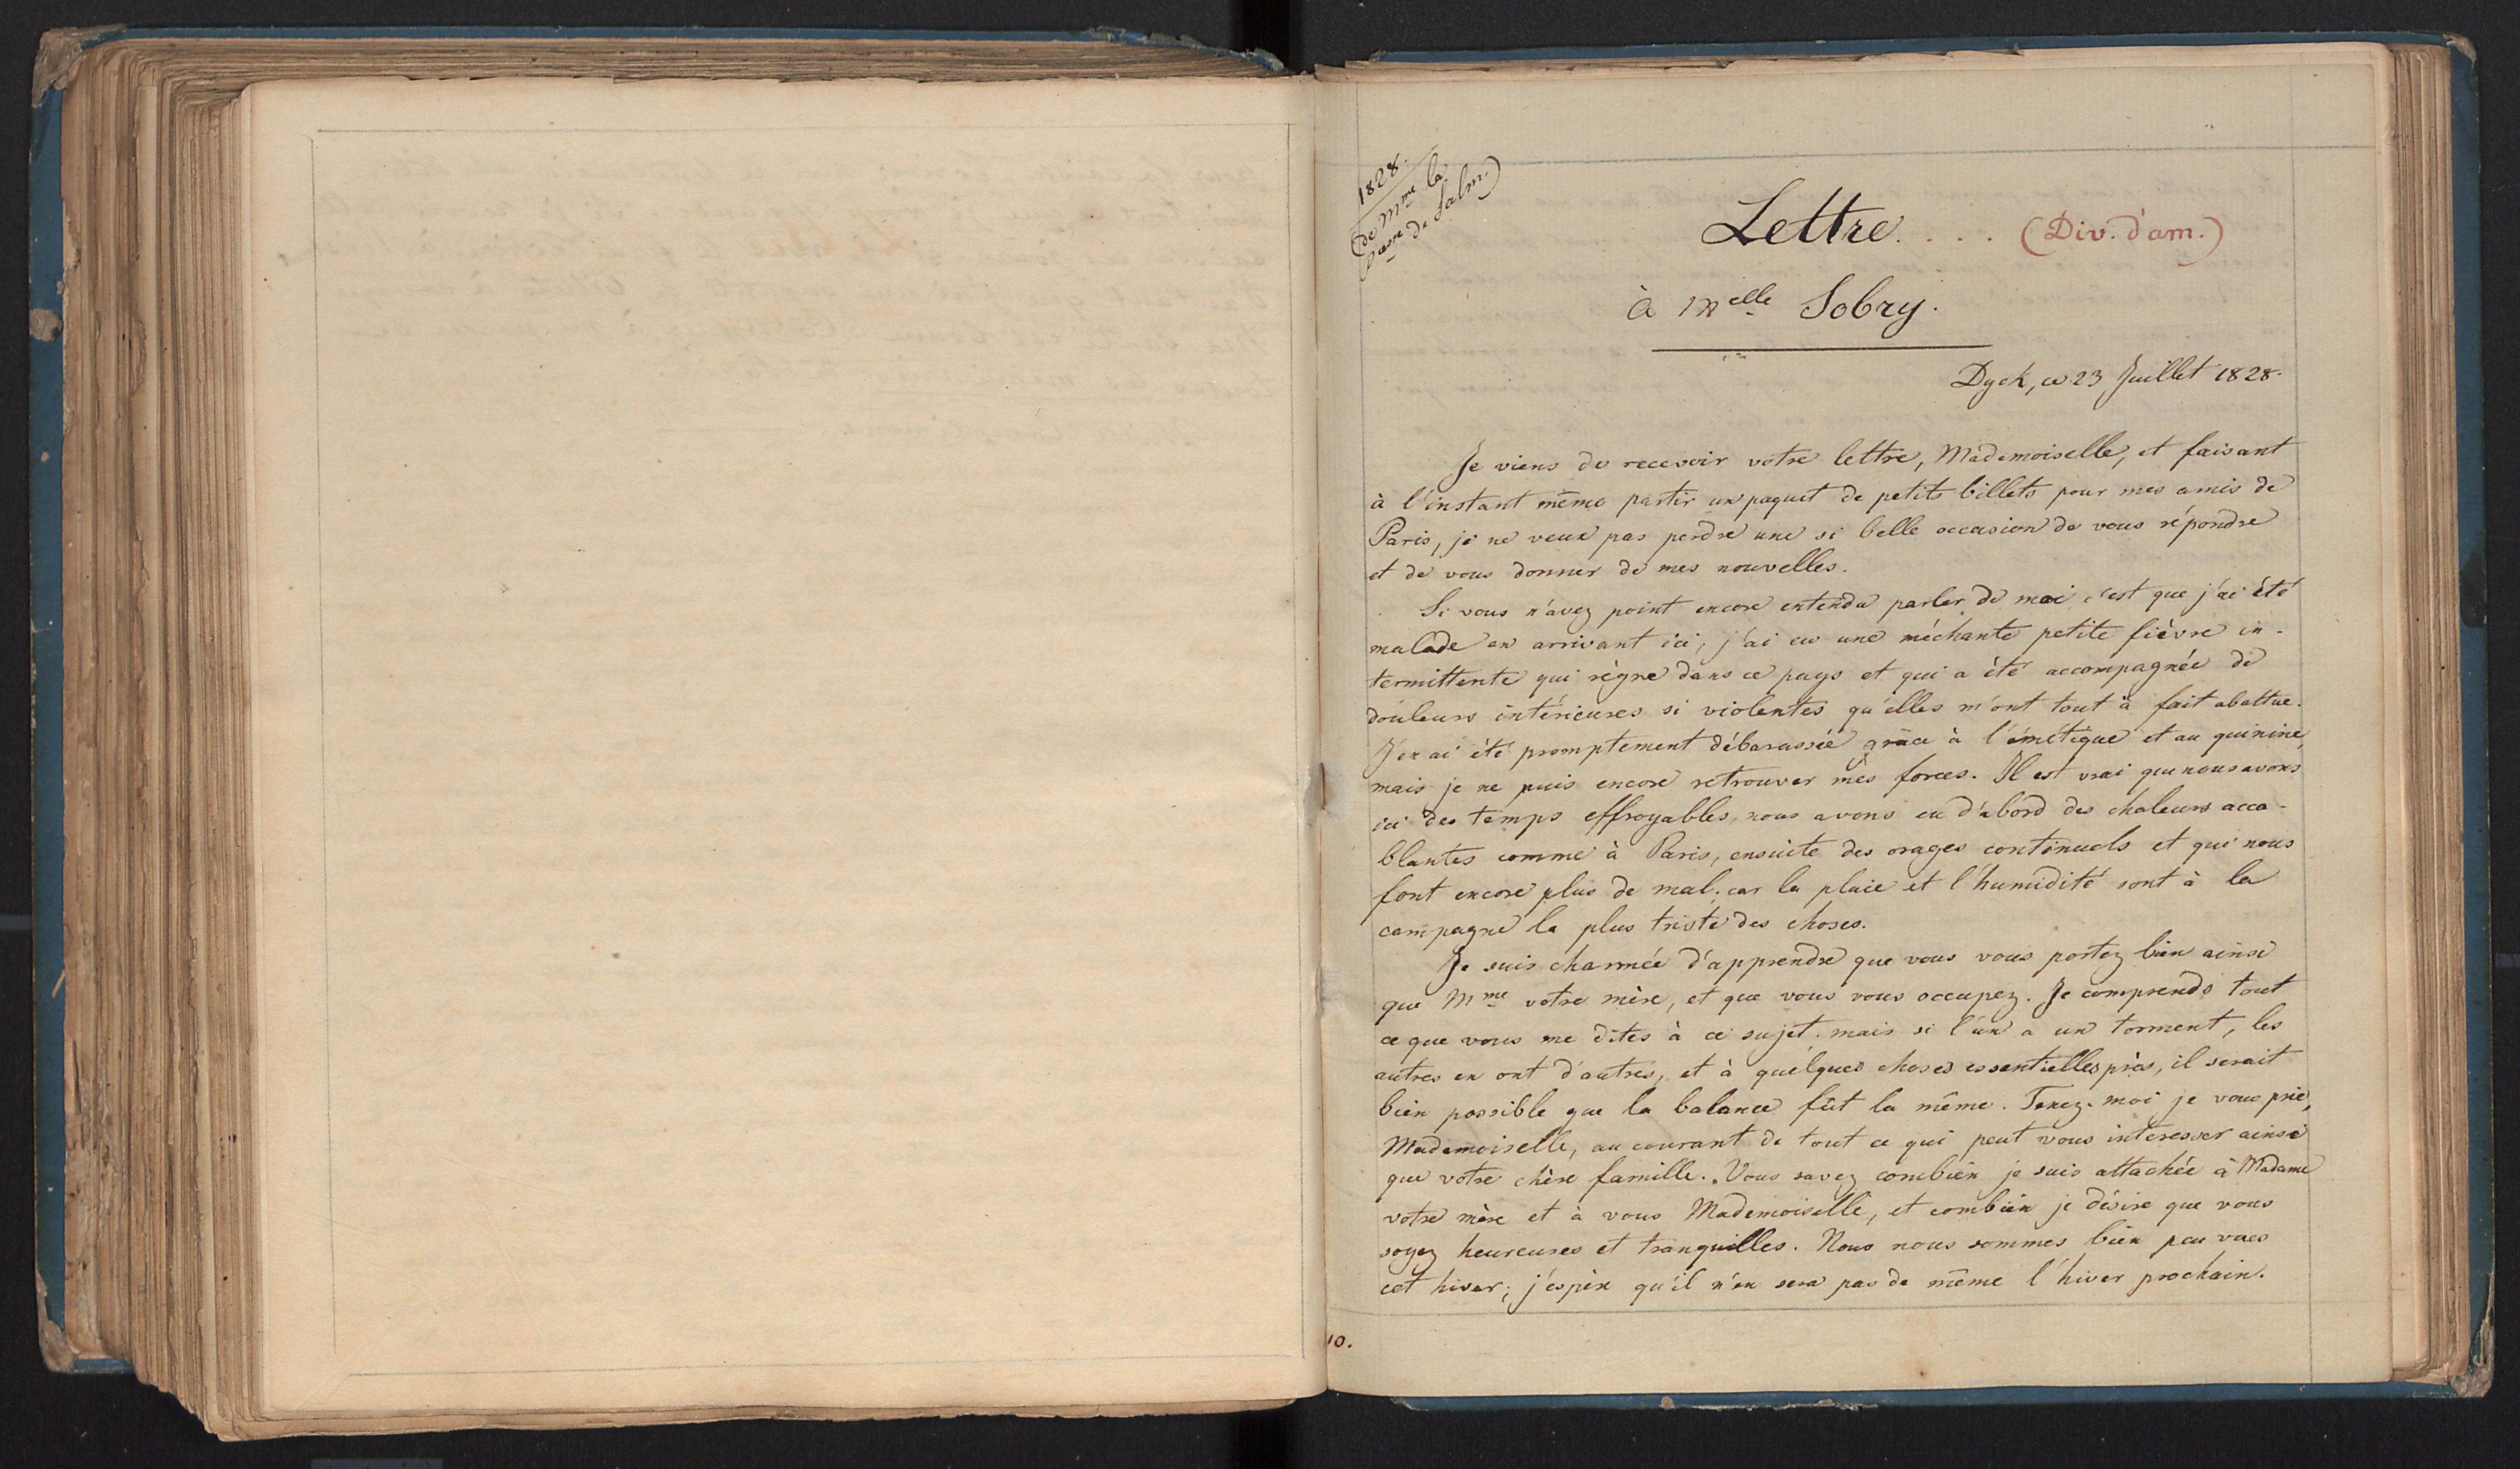 1828.
(de Mme la
Pcesse de Salm.)
Lettre. . . . (Div. d'am.)
à Melle Sobry.
Dyck, ce 23 Juillet 1828.
Je viens de recevoir votre lettre, Mademoiselle, et faisant
à l'instant même partir un paquet de petits billets pour mes amis de
Paris, je ne veux pas perdre une si belle occasion de vous répondre
et de vous donner de mes nouvelles.
Si vous n'avez point encore entendu parler de moi, c'est que j'ai été
malade en arrivant ici; j'ai eu une méchante petite fièvre in-
termittente qui règne dans ce pays et qui a été accompagnée de
douleurs intérieures si violentes qu'elles m'ont tout à fait abattue.
J'en ai été promptement débarassée grâce à l'émétique et au quinine,
mais je ne puis encore retrouver mes forces. Il est vrai que nous avons
ici des temps effroyables, nous avons eu d'abord des chaleurs acca-
blantes comme à Paris, ensuite des orages continuels et qui nous
font encore plus de mal; car la pluie et l'humidité sont à la
campagne la plus triste des choses.
Je suis charmée d'apprendre que vous vous portez bien ainsi
que Mme votre mère, et que vous vous occupez. Je comprends tout
ce que vous me dites à ce sujet. mais si l'un a un torment, les
autres en ont d'autres, et à quelques choses essentielles près, il serait
bien possible que la balance fût la même. Tenez-moi, je vous prie,
Mademoiselle, au courant de tout ce qui peut vous interesser ainsi
que votre chère famille. Vous savez combien je suis attachée à Madame
votre mère et à vous Mademoiselle, et combien je désire que vous
soyez heureuses et tranquilles. Nous nous sommes bien peu vues
cet hiver; j'espère qu'il n'en sera pas de même l'hiver prochain.
10.